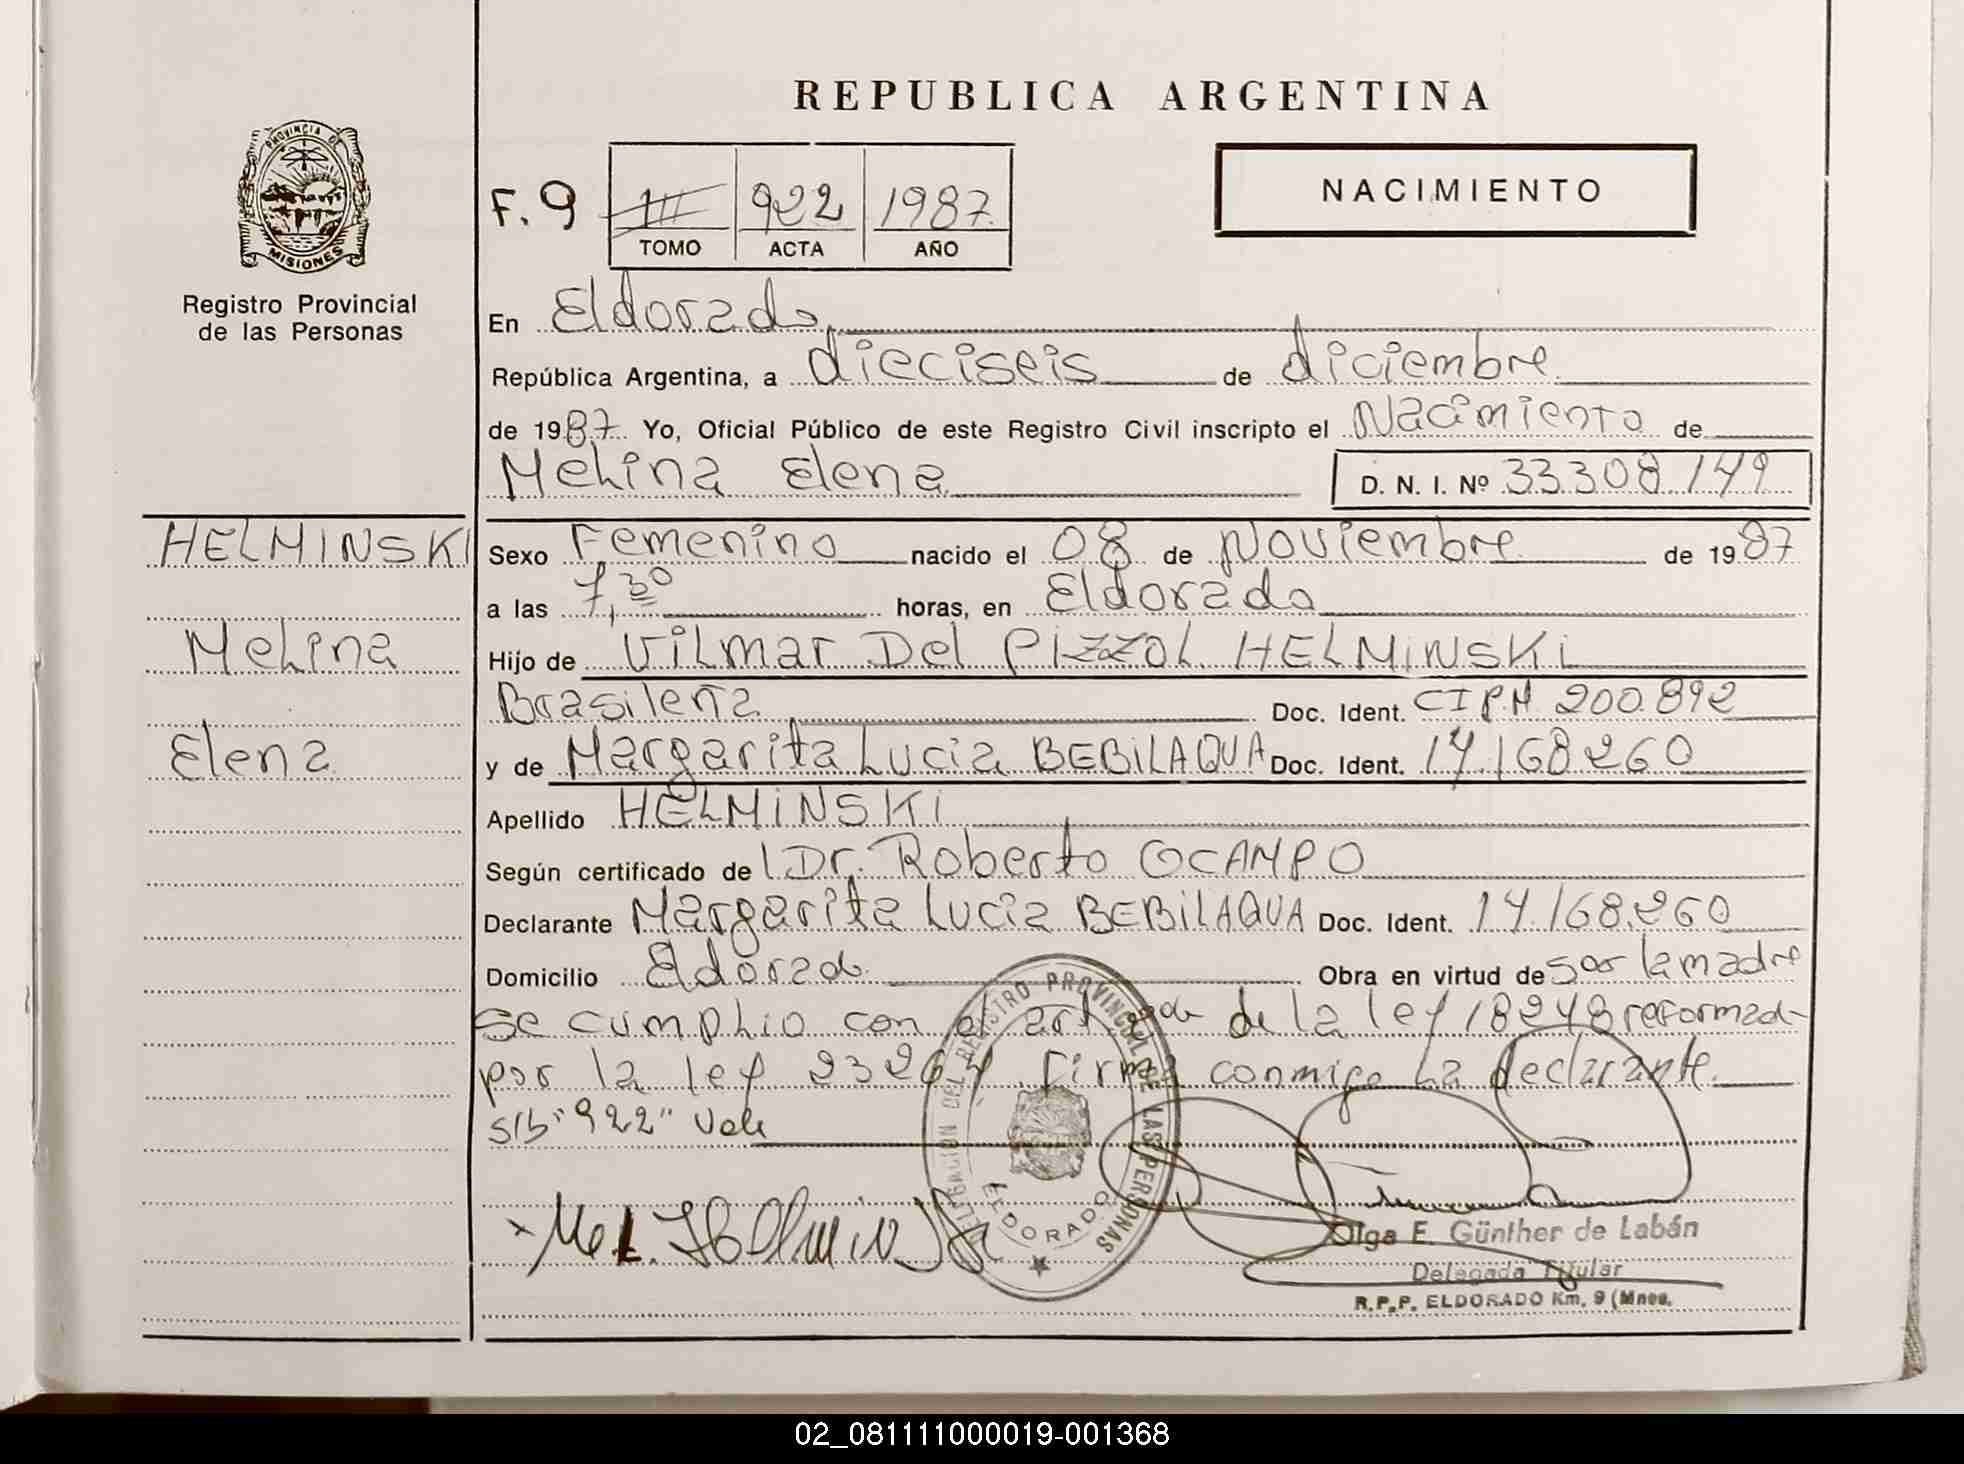 REPUBLICA ARGENTINA
PROVINCIA DE
MISIONES
Registro Provincial
de las Personas
NACIMIENTO
F. 9 III 922 1987
TOMO ACTA AÑO
En Eldorado
República Argentina, a dieciseis de diciembre
de 1987 Yo, Oficial Público de este Registro Civil inscripto el Nacimiento de
Melina Elena D. N. I. Nº 33.308.149
HELMINSKI
Melina
Elena
Sexo Femenino nacido el 08 de Noviembre de 1987
a las 7,30 horas, en Eldorado
Hijo de Vilmar Del Pizzol HELMINSKI
Brasileña Doc. Ident. CIPM 200.892
y de Margarita Lucia BEBILAQUA Doc. Ident. 14.168260
Apellido HELMINSKI
Según certificado de Dr. Roberto OCAMPO
Declarante Margarita Lucia BEBILAQUA Doc. Ident. 14.168.260
Domicilio Eldorado Obra en virtud de ser la madre
se cumplio con el art. 2do de la ley 18248 reformada
por la ley 23264 Firma conmigo la declarante.
s/b "922" Vale
DELEGACION DEL REGISTRO PROVINCIAL DE LAS PERSONAS
ELDORADO
M. L. Helminski
Olga E. Günther de Labán
Delegada Titular
R.P.P. ELDORADO Km. 9 (Mnes.
02_081111000019-001368